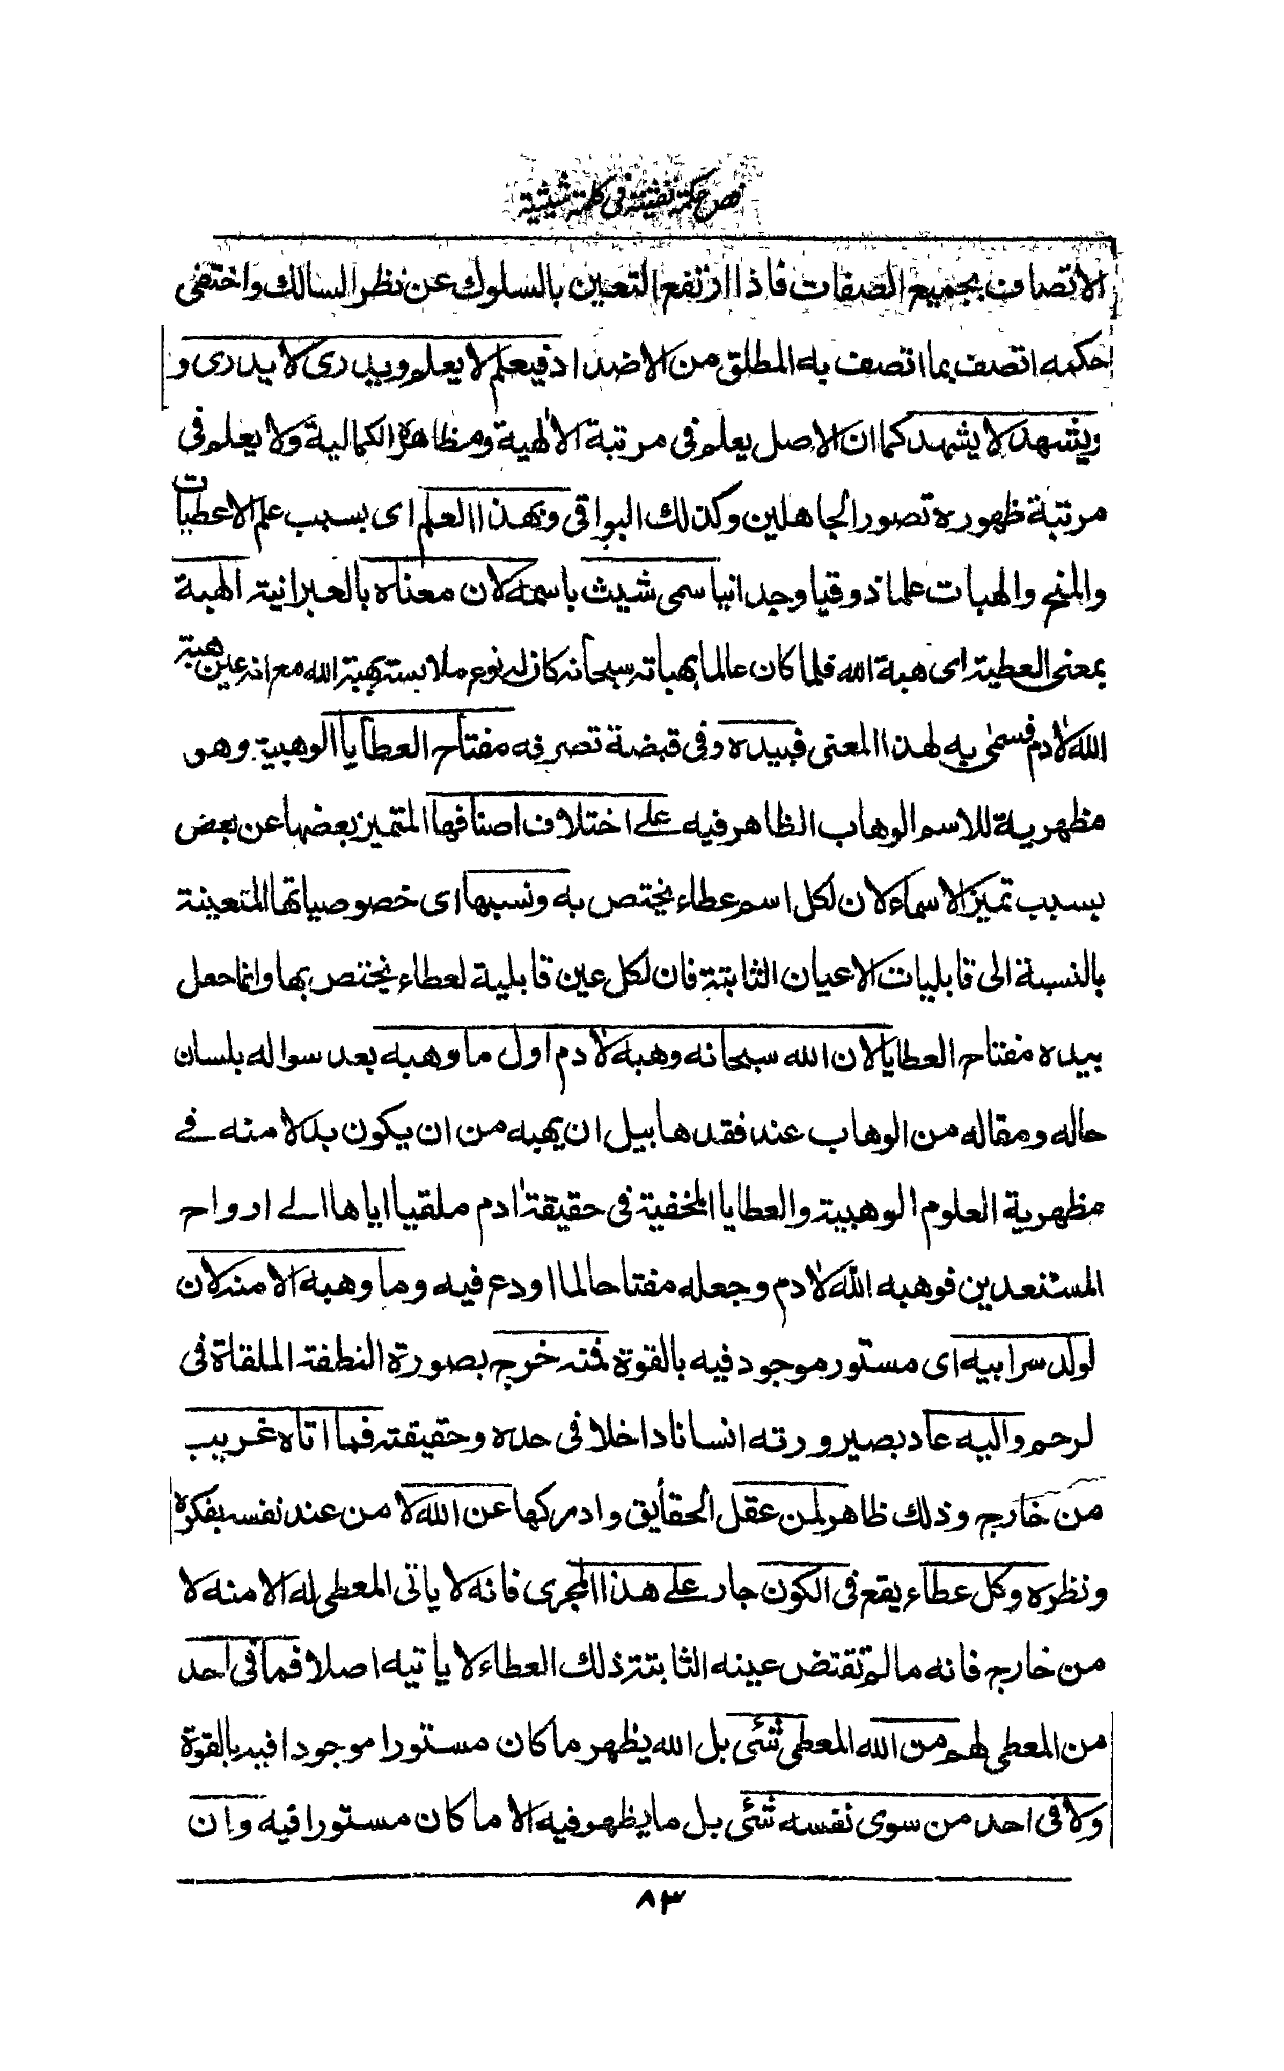 فص حكمة نفثية فى كلمة شيثية
الاتصاف بجميع الصفات فاذا ارتفع التعين بالسلوك عن نظر السالك واختفى
حكمه اتصف بما اتصف به المطلق من الاضداد فيعلم لا يعلم ويدرى لا يدرى و
ويشهد لا يشهد كما ان الاصل يعلم فى مرتبة الالهية ومظاهره الكمالية ولا يعلم فى
مرتبة ظهوره تصور الجاهلين وكذلك البواقى وبهذا العلم اى بسبب علم الاعطيات
والمنح والهبات علما ذوقيا وجدانيا سمى شيث باسمه لان معناه بالعبرانية الهبة
بمعنى العطية اى هبة الله فلما كان عالما بهباته سبحانه كان له نوع ملابسته بهبة الله مع انه عين هبة
الله لادم فسمى به لهذا المعنى فبيده وفى قبضة تصرفه مفتاح العطايا الوهبية وهو
مظهرية للاسم الوهاب الظاهر فيه على اختلاف اصنافها المتميز بعضها عن بعض
بسبب تميز الاسماء لان لكل اسم عطاء يختص به ونسبها اى خصوصياتها المتعينة
بالنسبة الى قابليات الاعيان الثابتة فان لكل عين قابلية لعطاء يختص بها وانما جعل
بيده مفتاح العطايا لان الله سبحانه وهبه لادم اول ما وهبه بعد سواله بلسان
حاله ومقاله من الوهاب عند فقد هابيل ان يهبه من ان يكون بدلا منه فى
مظهرية العلوم الوهبية والعطايا المخفية فى حقيقة ادم ملقيا اياها الى ارواح
المستعدين فوهبه الله لادم وجعله مفتاحا لما اودع فيه وما وهبه الا منه لان
لولد سر ابيه اى مستور موجود فيه بالقوة فمنه خرج بصورة النطفة الملقاة فى
لرحم واليه عاد بصيرورته انسانا داخلا فى حده وحقيقته فما اتاه غريب
من خارج وذلك ظاهر لمن عقل الحقايق وادركها عن الله لا من عند نفسه بفكره
ونظره وكل عطاء يقع فى الكون جار على هذا المجرى فانه لا ياتى المعطى له الا منه لا
من خارج فانه ما لم تقتض عينه الثابتة ذلك العطاء لا ياتيه اصلا فما فى احد
من المعطى لهم من الله المعطى شئ بل الله يظهر ما كان مستورا موجودا فيه بالقوة
ولا فى احد من سوى نفسه شئ بل ما يظهر فيه الا ما كان مستورا فيه وان
٨٣